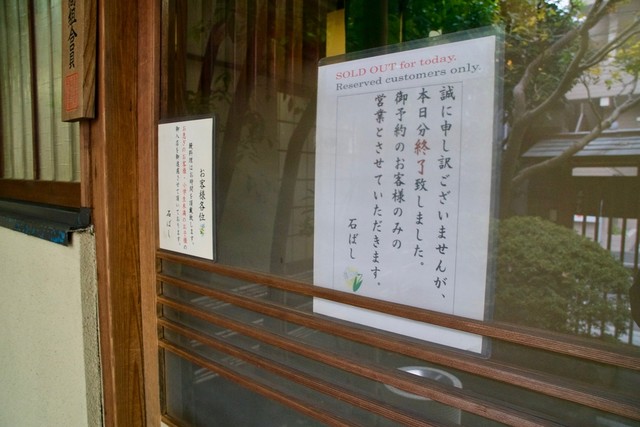 SOLD OUT for today.
Reserved customers only.
誠に申し訳ございませんが、
本日分終了致しました。
御予約のお客様のみの
営業とさせていただきます。
石ばし
お客様各位
石ばし
組合員